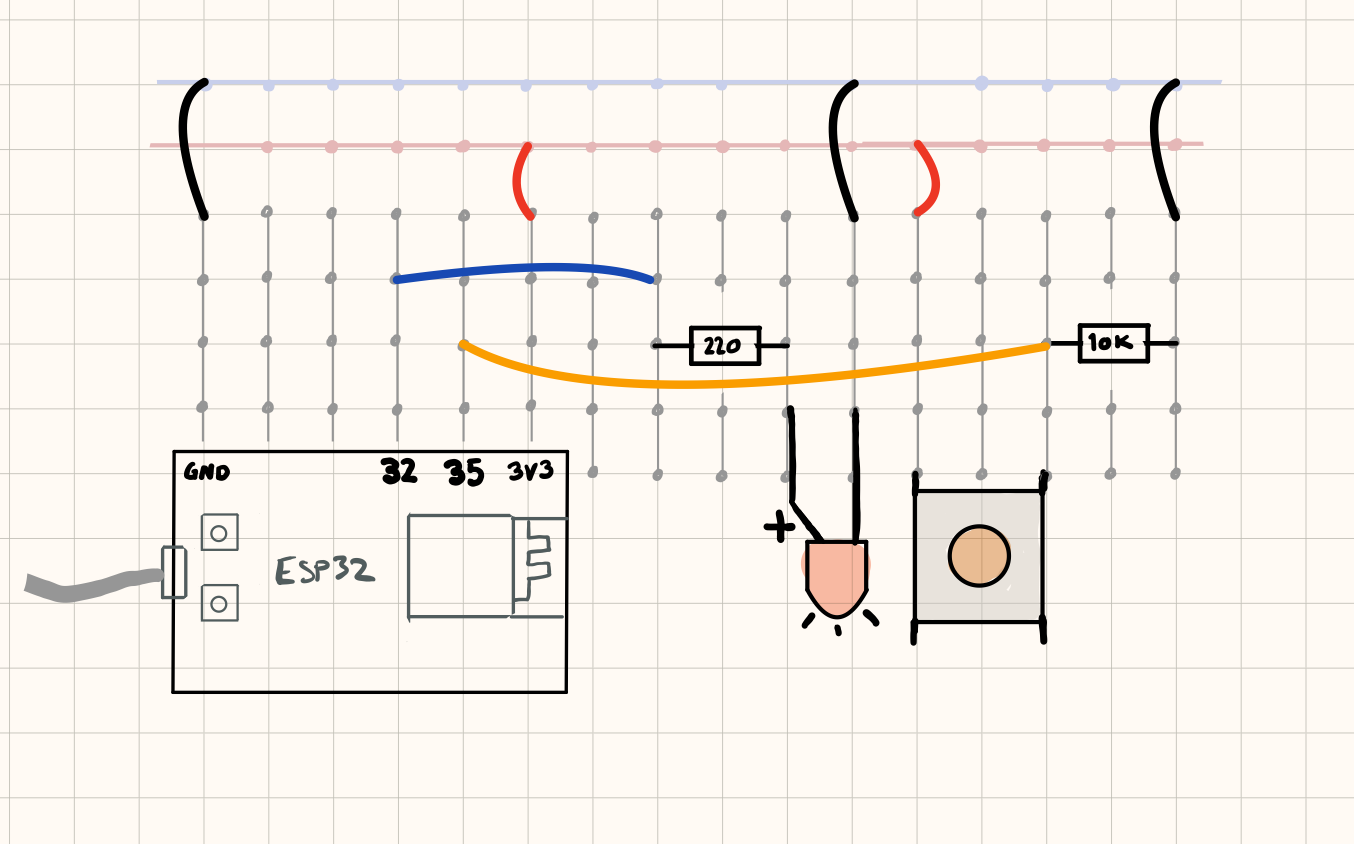 220
10K
GND 32 35 3V3
ESP32
+